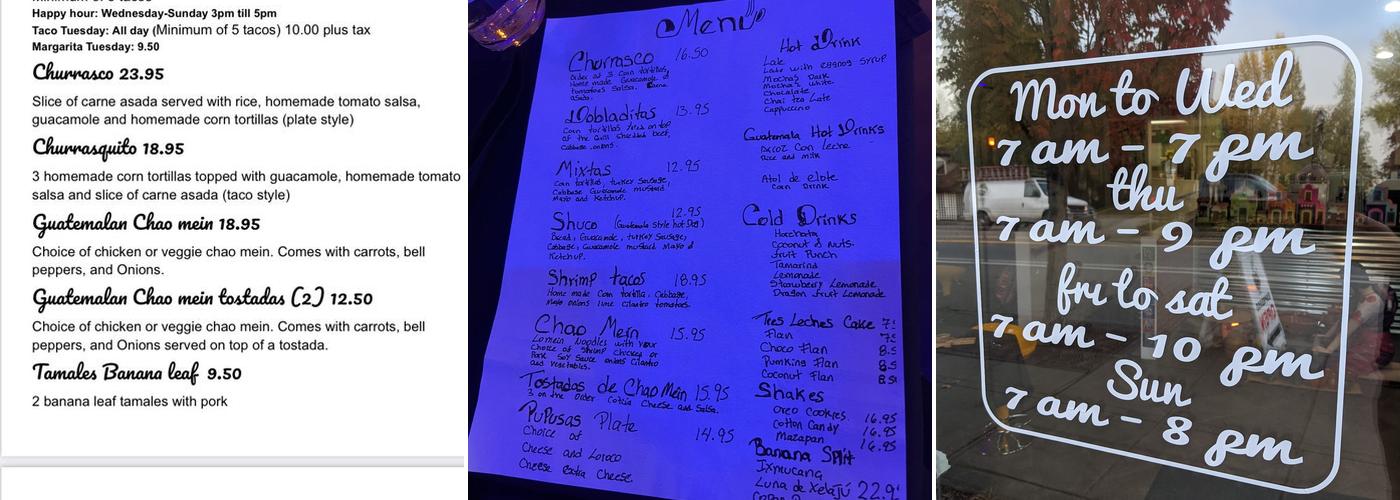 Happy hour: Wednesday-Sunday 3pm till 5pm
Taco Tuesday: All day (Minimum of 5 tacos) 10.00 plus tax
Margarita Tuesday: 9.50
Churrasco 23.95
Slice of carne asada served with rice, homemade tomato salsa,
guacamole and homemade corn tortillas (plate style)
Churrasquito 18.95
3 homemade corn tortillas topped with guacamole, homemade tomato
salsa and slice of carne asada (taco style)
Guatemalan Chao mein 18.95
Choice of chicken or veggie chao mein. Comes with carrots, bell
peppers, and Onions.
Guatemalan Chao mein tostadas (2) 12.50
Choice of chicken or veggie chao mein. Comes with carrots, bell
peppers, and Onions served on top of a tostada.
Tamales Banana leaf 9.50
2 banana leaf tamales with pork
Menu
Churrasco 16.50
Order of 3 Corn tortillas,
Home made Guacamole &
tomatoes Salsa. Carne
asada.
Dobladitas 13.95
Corn tortillas fried on top
of the Grill Shredded beef,
Cabbage onions.
Mixtas 12.95
Corn tortillas, turkey Sausage,
Cabbage Guacamole mustard
Mayo and Ketchup.
Shuco (Guatemala style hot dog) 12.95
Bread, Guacamole, turkey Sausage,
Cabbage, Guacamole mustard Mayo &
Ketchup.
Shrimp tacos 18.95
Home made Corn tortilla, Cabbage,
Mayo onions lime Cilantro tomatoes.
Chao Mein 15.95
Lomein Noodles with your
Choice of Shrimp Chicken or
Pork Soy Sauce onions Cilantro
and vegetables.
Tostadas de Chao Mein 15.95
3 on the order Cotija Cheese and Salsa.
PuPusas Plate 14.95
Choice of
Cheese and Loroco
Cheese Extra Cheese.
Hot Drink
Late
Late with eggnog Syrup
Mochas Dark
Mocha's white
Chocolate
Chai tea Late
Cappuccino
Guatemala Hot Drinks
Arroz Con leche
Rice and milk
Atol de elote
Corn Drink
Cold Drinks
Horchata
Coconut & Nuts.
fruit Punch
Tamarind
Lemonade
Strawberry Lemonade
Dragon fruit Lemonade
Tres Leches Cake
Flan
Choco Flan
Pumking Flan
Coconut Flan
Shakes
Oreo Cookies 16.95
Cotton Candy 16.95
Mazapan 16.95
Banana Split
Ixmucang
Luna de Xelajú
Mon to Wed
7 am - 7 pm
thu
7 am - 9 pm
fri to sat
7 am - 10 pm
Sun
7 am - 8 pm